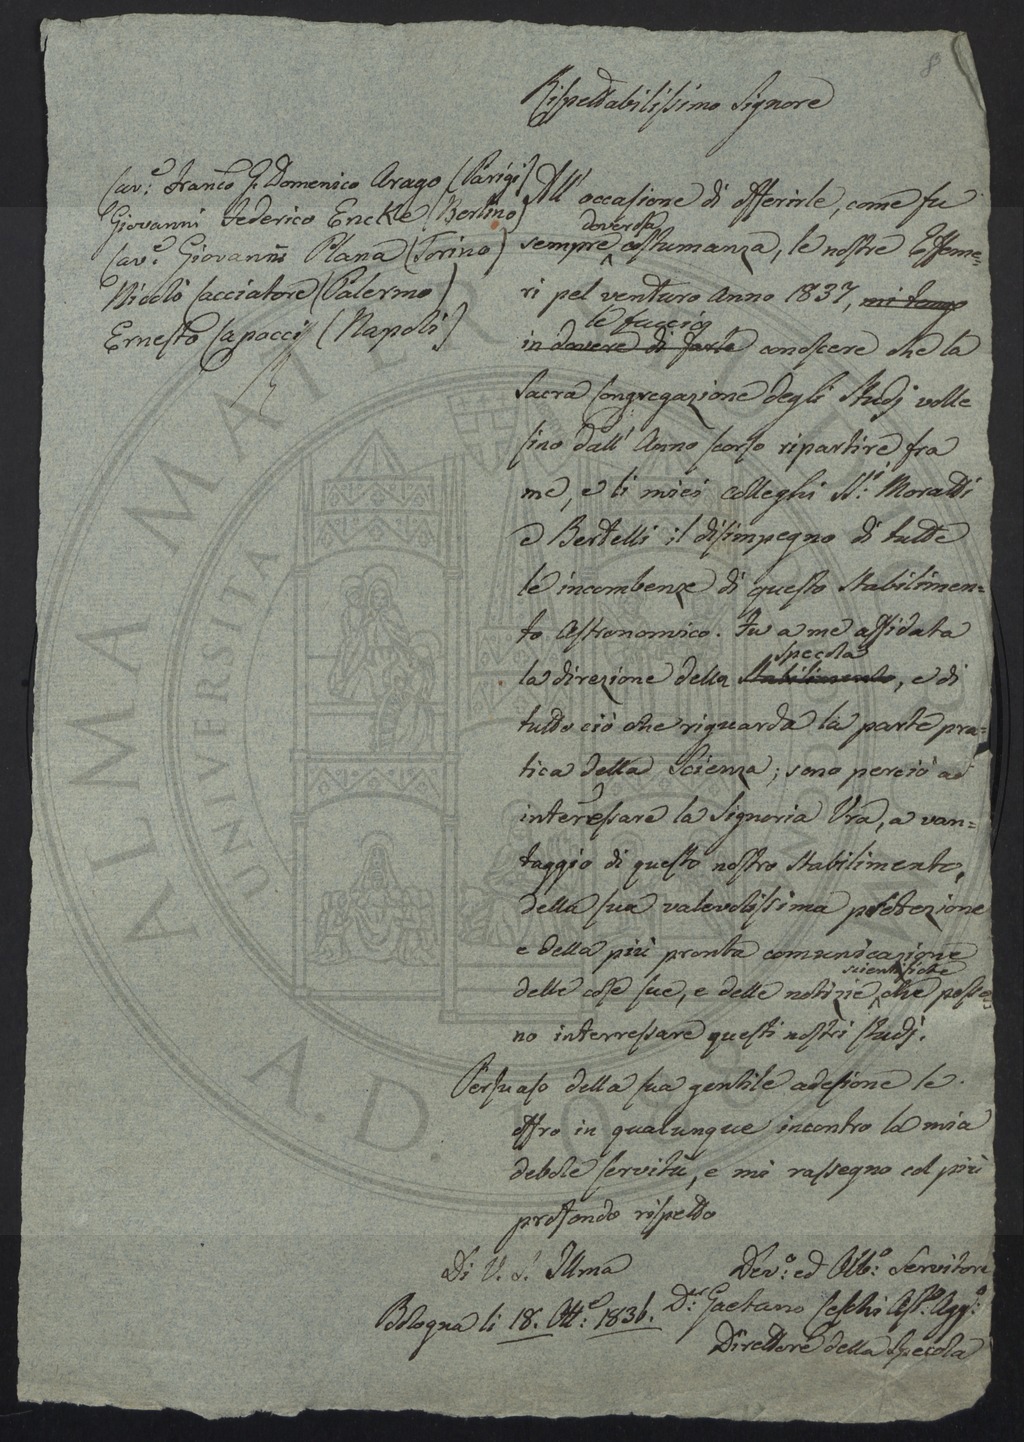 8
Rispettabilissimo Signore
Cav.e Franco G. Domenico Arago (Parigi)
Giovanni Federico Encke (Berlino)
Cav.e Giovanni Plana (Torino)
Nicolò Cacciatore (Palermo)
Ernesto Capocci (Napoli)
All' occasione di offerirle, come fu
doverosa
sempre costumanza, le nostre Effeme=
ri pel venturo Anno 1837, mi tengo
le faccio
in dovere di farle conoscere che la
Sacra Congregazione degli Studj volle
sino dall' Anno scorso ripartire fra
me, e li miei colleghi SS.ri Moratti
e Bertelli il disimpegno di tutte
le incombenze di questo Stabilimen=
to Astronomico. Fu a me affidata
Specola
la direzione della Stabilimento, e di
tutto ciò che riguarda la parte pra=
tica della Scienza; sono perciò ad
interressare la Signoria Vra, a van=
taggio di questo nostro Stabilimento,
della sua valevolissima protezione
e della più pronta comunicazione
scientifiche
delle cose sue, e delle notizie che posso
no interressare questi nostri Studj.
Persuaso della sua gentile adesione le
offro in qualunque incontro la mia
debole servitù, e mi rassegno col più
profondo rispetto
Di V. S. Illma
Dev.o ed Obb.o Servitore
Bologna li 18. Ott.e 1836.
D.r Gaetano Ceschi Ast.o Agg.o
Direttore della Specola
ALMA MATER
UNIVERSITA
A.D. 1088